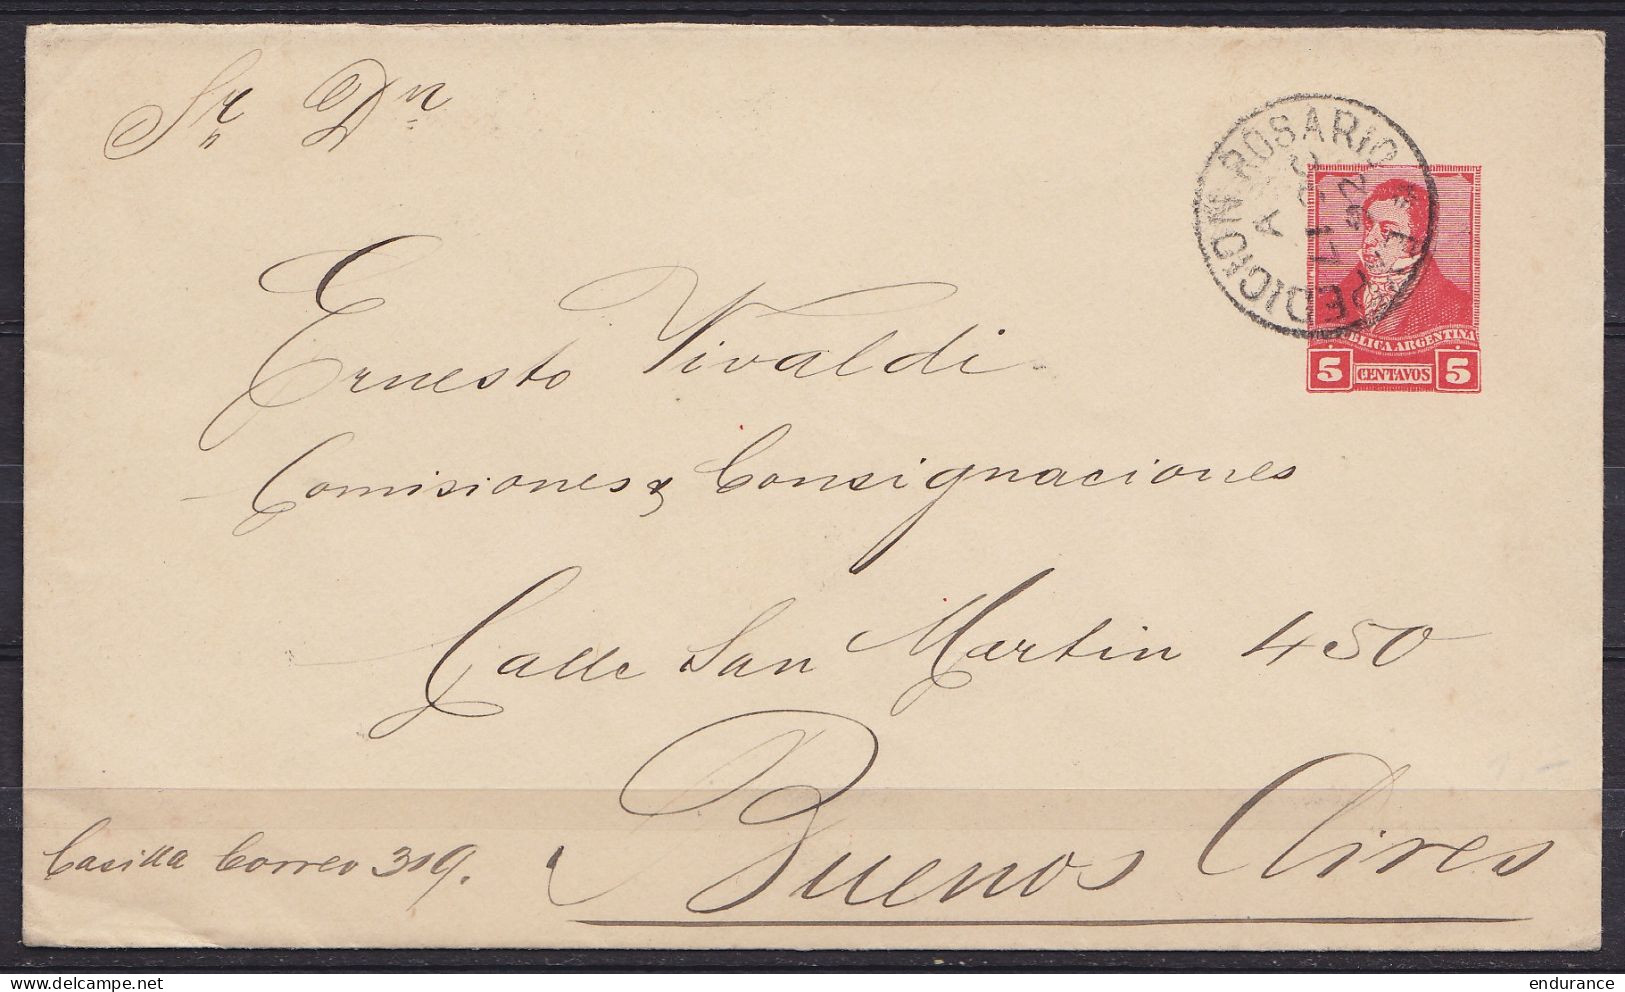 Sr. Dn.
EXPEDICION ROSARIO
A
17
92
REPUBLICA ARGENTINA
5 CENTAVOS 5
Ernesto Vivaldi
Comisiones y Consignaciones
Calle San Martin 450
Buenos Aires
Casilla Correo 309.
endurance